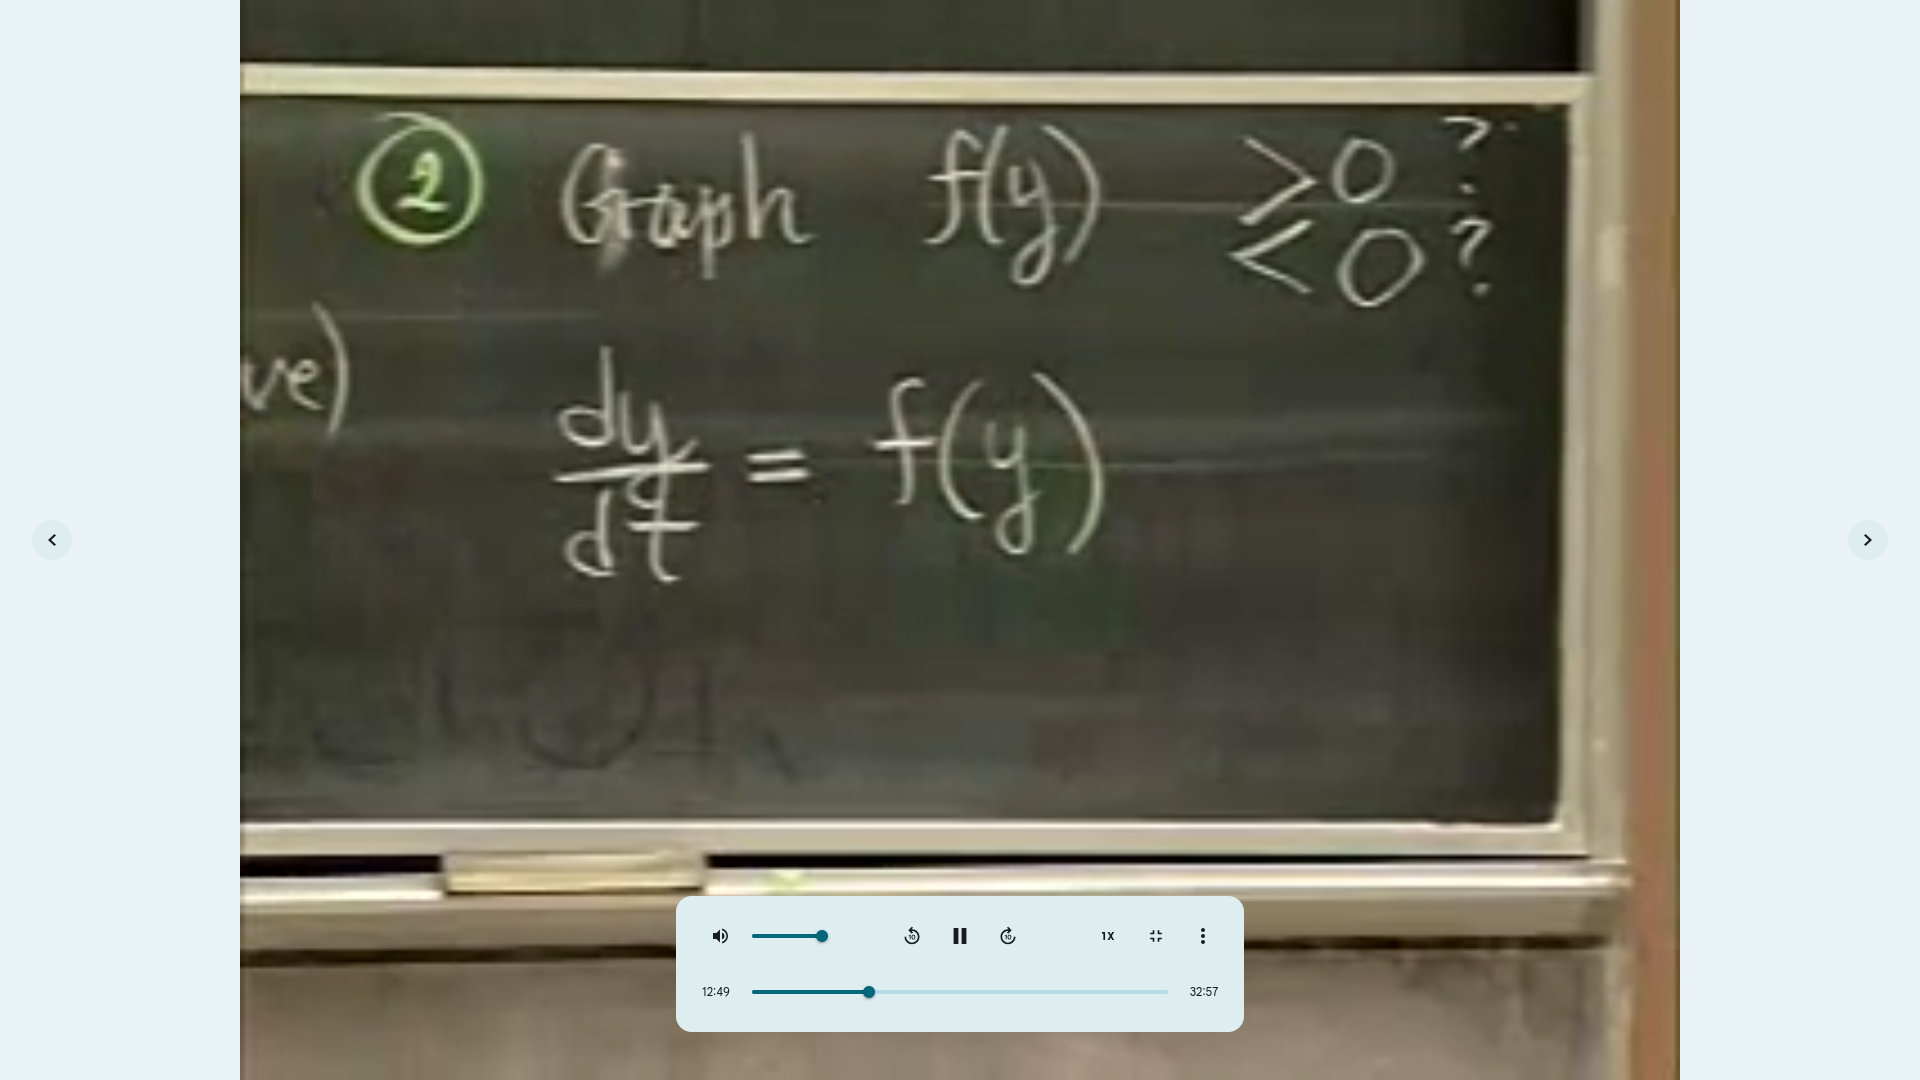 ② Graph f(y) >0 ?
<0 ?
ve)
dy/dt = f(y)
10 10 1X
12:49 32:57